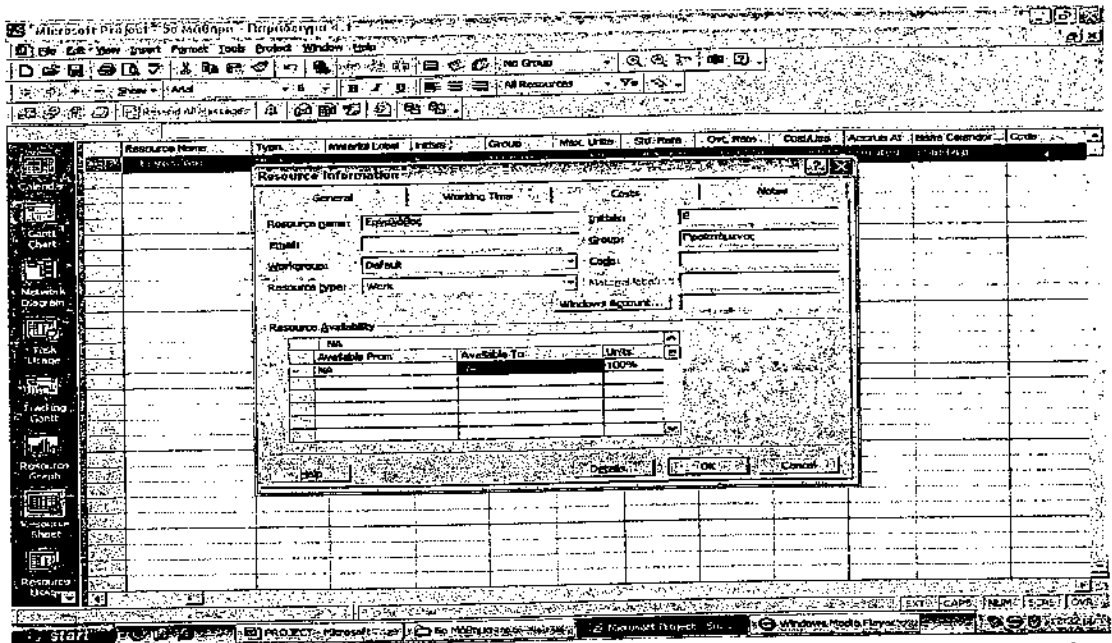 Microsoft Project - 5ο Μάθημα - Παράδειγμα
File Edit View Insert Format Tools Project Window Help
No Group
Show Arial 8 B I U All Resources
Resend All Messages
Resource Name Type Material Label Initials Group Max. Units Std. Rate Ovt. Rate Cost/Use Accrue At Base Calendar Code
Calendar
Gantt Chart
Network Diagram
Task Usage
Tracking Gantt
Resource Graph
Resource Sheet
Resource Usage
Resource Information
General Working Time Costs Notes
Resource name:
Initials: E
Email:
Group: Προϊστάμενος
Workgroup: Default
Code:
Resource type: Work
Material label:
Windows Account...
Resource Availability
NA
Available From Available To Units
NA 100%
Help Details... OK Cancel
EXT CAPS NUM SCRL OVR
Start PROJECT - Microsoft Microsoft Project Windows Media Player